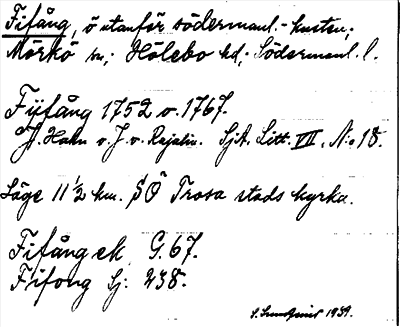 Fifång, ö utanför södermanl.-kusten;
Mörkö sn; Hölebo hd; Södermanl. l.
Fijfång 1752 o. 1767.
J. Hahn o. J. v. Rajalin. SjA. Litt. VII. N:o 18.
Läge 11 1/2 km. SÖ Trosa stads kyrka.
Fifång ek. G. 67.
Fifong Sj: 238.
1939.